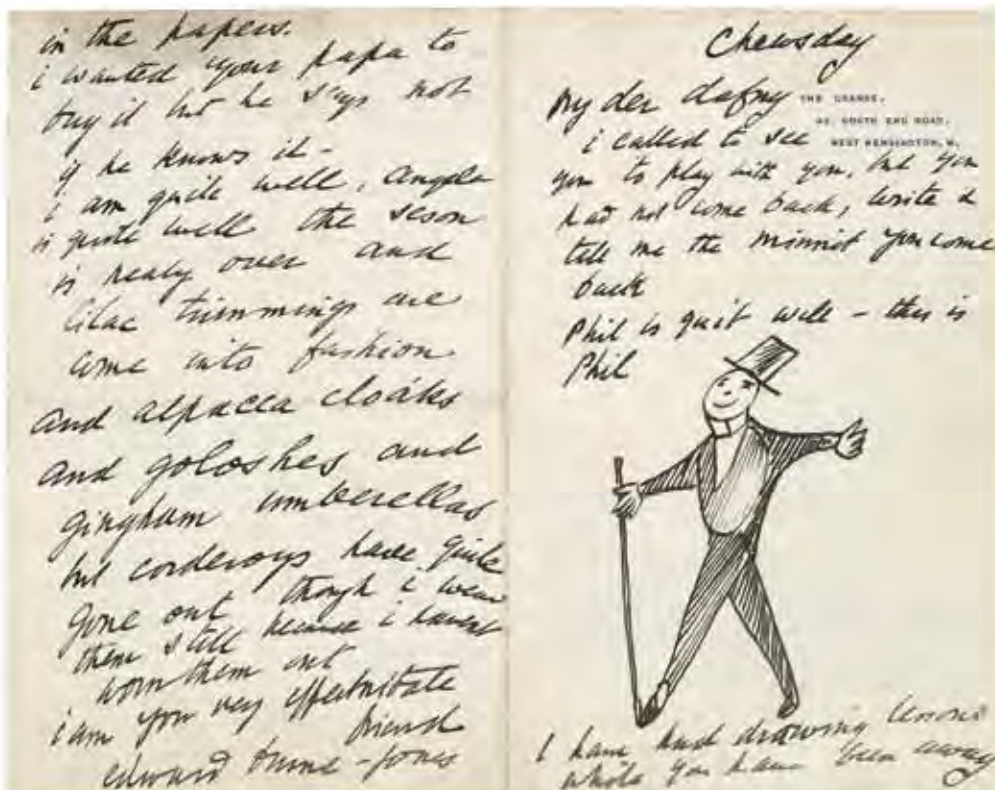 in the papers.
i wanted your papa to
buy it but he says not
if he knows it -
i am quite well, angela
is quite well the seson
is realy over and
lilac trimmings are
come into fashion
and alpacca cloaks
and goloshes and
gingham umberellas
but corderoys have quite
gone out though i wear
them still because i havent
worn them out
i am your very
friend
edward burne-jones
Chewsday
THE GRANGE,
49, NORTH END ROAD,
WEST KENSINGTON, W.
my der dafny
i called to see
you to play with you, but you
had not come back, write &
tell me the minnit you come
back
Phil is quit well - this is
Phil
I have had drawing lessons
while you have been away